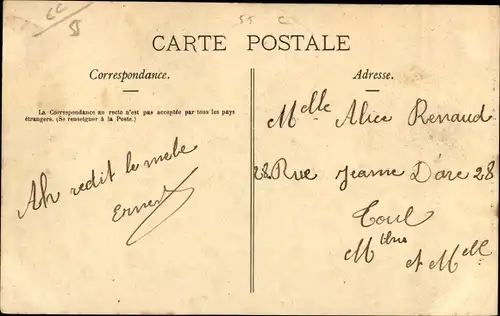 CC
S
55 C
CARTE POSTALE
Correspondance.
La Correspondance au recto n'est pas acceptée par tous les pays
étrangers. (Se renseigner à la Poste.)
Ah redit le mele
Ernest
Adresse.
Melle Alice Renaud
28 Rue Jeanne D'arc 28
Toul
Mthe
et Mlle